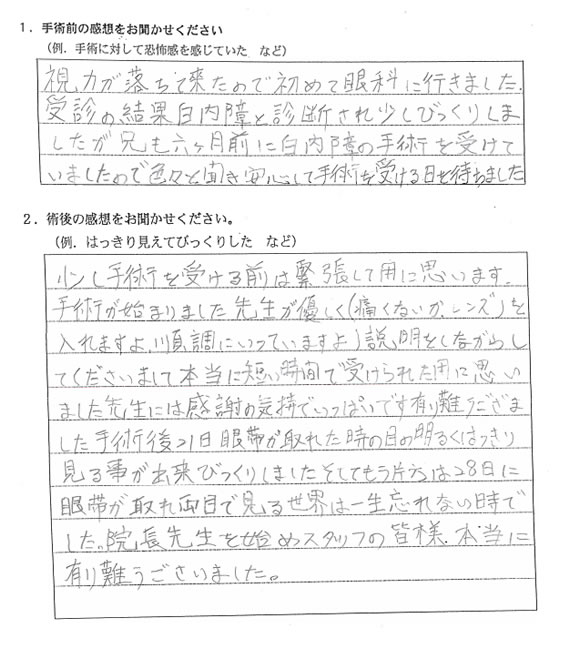 1．手術前の感想をお聞かせください
（例．手術に対して恐怖感を感じていた　など）
視力が落ちて来たので初めて眼科に行きました．
受診の結果白内障と診断され少しびっくりしま
したが兄も六ヶ月前に白内障の手術を受けて
いましたので色々と聞き安心して手術を受ける日を待ちました
2．術後の感想をお聞かせください。
（例．はっきり見えてびっくりした　など）
少し手術を受ける前は緊張して用に思います．
手術が始まりました先生が優しく(痛くないか．レンズ)を
入れますよ．順調にいっていますよ)説明をしながらし
てくださいまして本当に短い時間で受けられた用に思い
ました先生には感謝の気持でいっぱいです有り難うござま
した手術後21日眼帯が取れた時の目の明るくはっきり
見る事が出来びっくりしましたそしてもう片方は28日に
眼帯が取れ両目で見る世界は一生忘れない時で
した．院長先生を始めスタッフの皆様．本当に
有り難うございました。